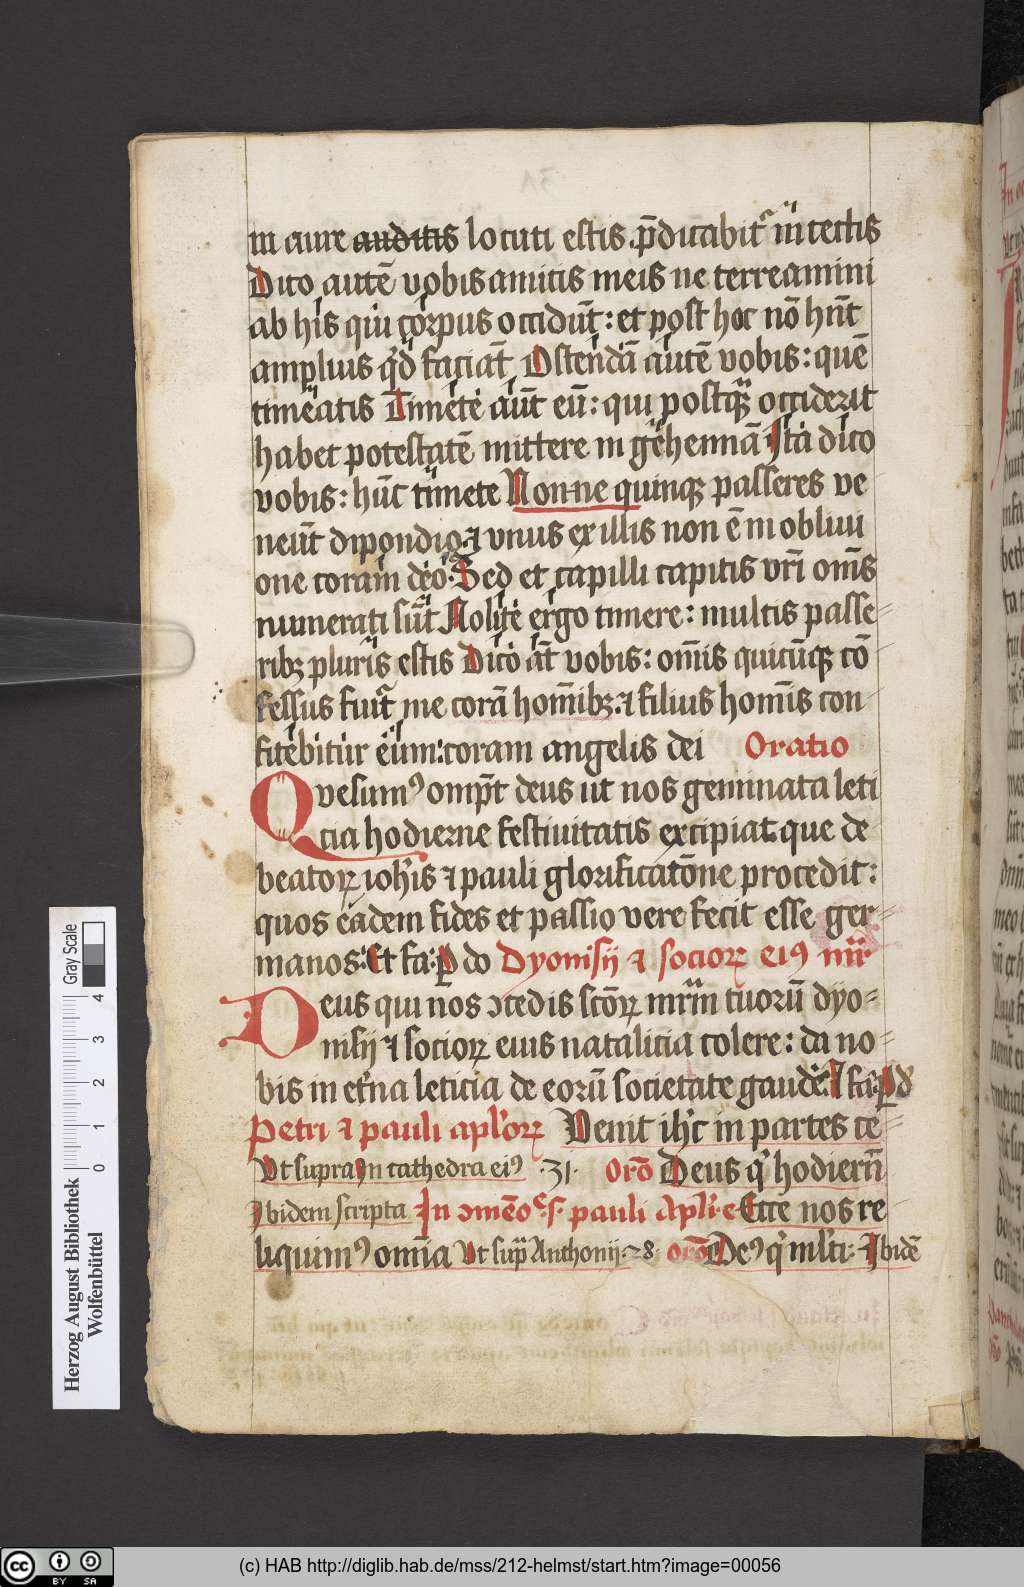 in aure auditis locuti estis p̄dicabit᷑ in tectis
Dico autē vobis amicis meis ne terreamini
ab his qui corpus occidūt : et post hoc nō hn̄t
amplius qd̓ faciāt Ostendā autē vobis : quē
timeatis Timete aūt eū : qui postqꝫ occiderit
habet potestatē mittere in gehennā Ita dico
vobis : hūc timete Non-ne quinqꝫ passeres ve
neūt dipondio ⁊ vnus ex illis non ē in obliui
one coram deo : Sed et capilli capitis vr̄i om̄s
numerati sūt Nolite ergo timere : multis passe-
ribꝫ pluris estis Dico āt vobis : om̄is quicūqꝫ cō-
fessus fuit᷑ me corā hom̄ibꝫ ⁊ filius homīs con-
fitebitur eum : coram angelis dei Oratio
Qvesumꝰ omp̄t deus ut nos geminata leti
cia hodierne festiuitatis excipiat que de
beatoꝝ ioh̓is ⁊ pauli glorificatōne procedit :
quos eadem fides et passio vere fecit esse ger-
manos : Et fa : P do Dyonisij ⁊ socioꝝ eiꝰ mr̄
Deus qui nos ↄcedis scōꝝ mr̄m tuorū dyo-
nisij ⁊ socioꝝ eius natalicia colere : da no-
bis in et̓na leticia de eorū societate gaudē :
Petri ⁊ pauli apl̓oꝝ Venit ih̓c in partes ce-
Vt supra In cathedra eiꝰ · 31 · Orō Deus q̓ hodiern̄
Ibidem scripta In ↄmēo s. pauli Apl̓i · e Ecce nos re
liquimꝰ omīa Vt sup̄ Anthonij · 28 orō Deꝰ q̓ ml̓ti : ⁊ Ibidē
Herzog August Bibliothek
Wolfenbüttel
Gray Scale
0 1 2 3 4
(c) HAB http://diglib.hab.de/mss/212-helmst/start.htm?image=00056
cc BY SA